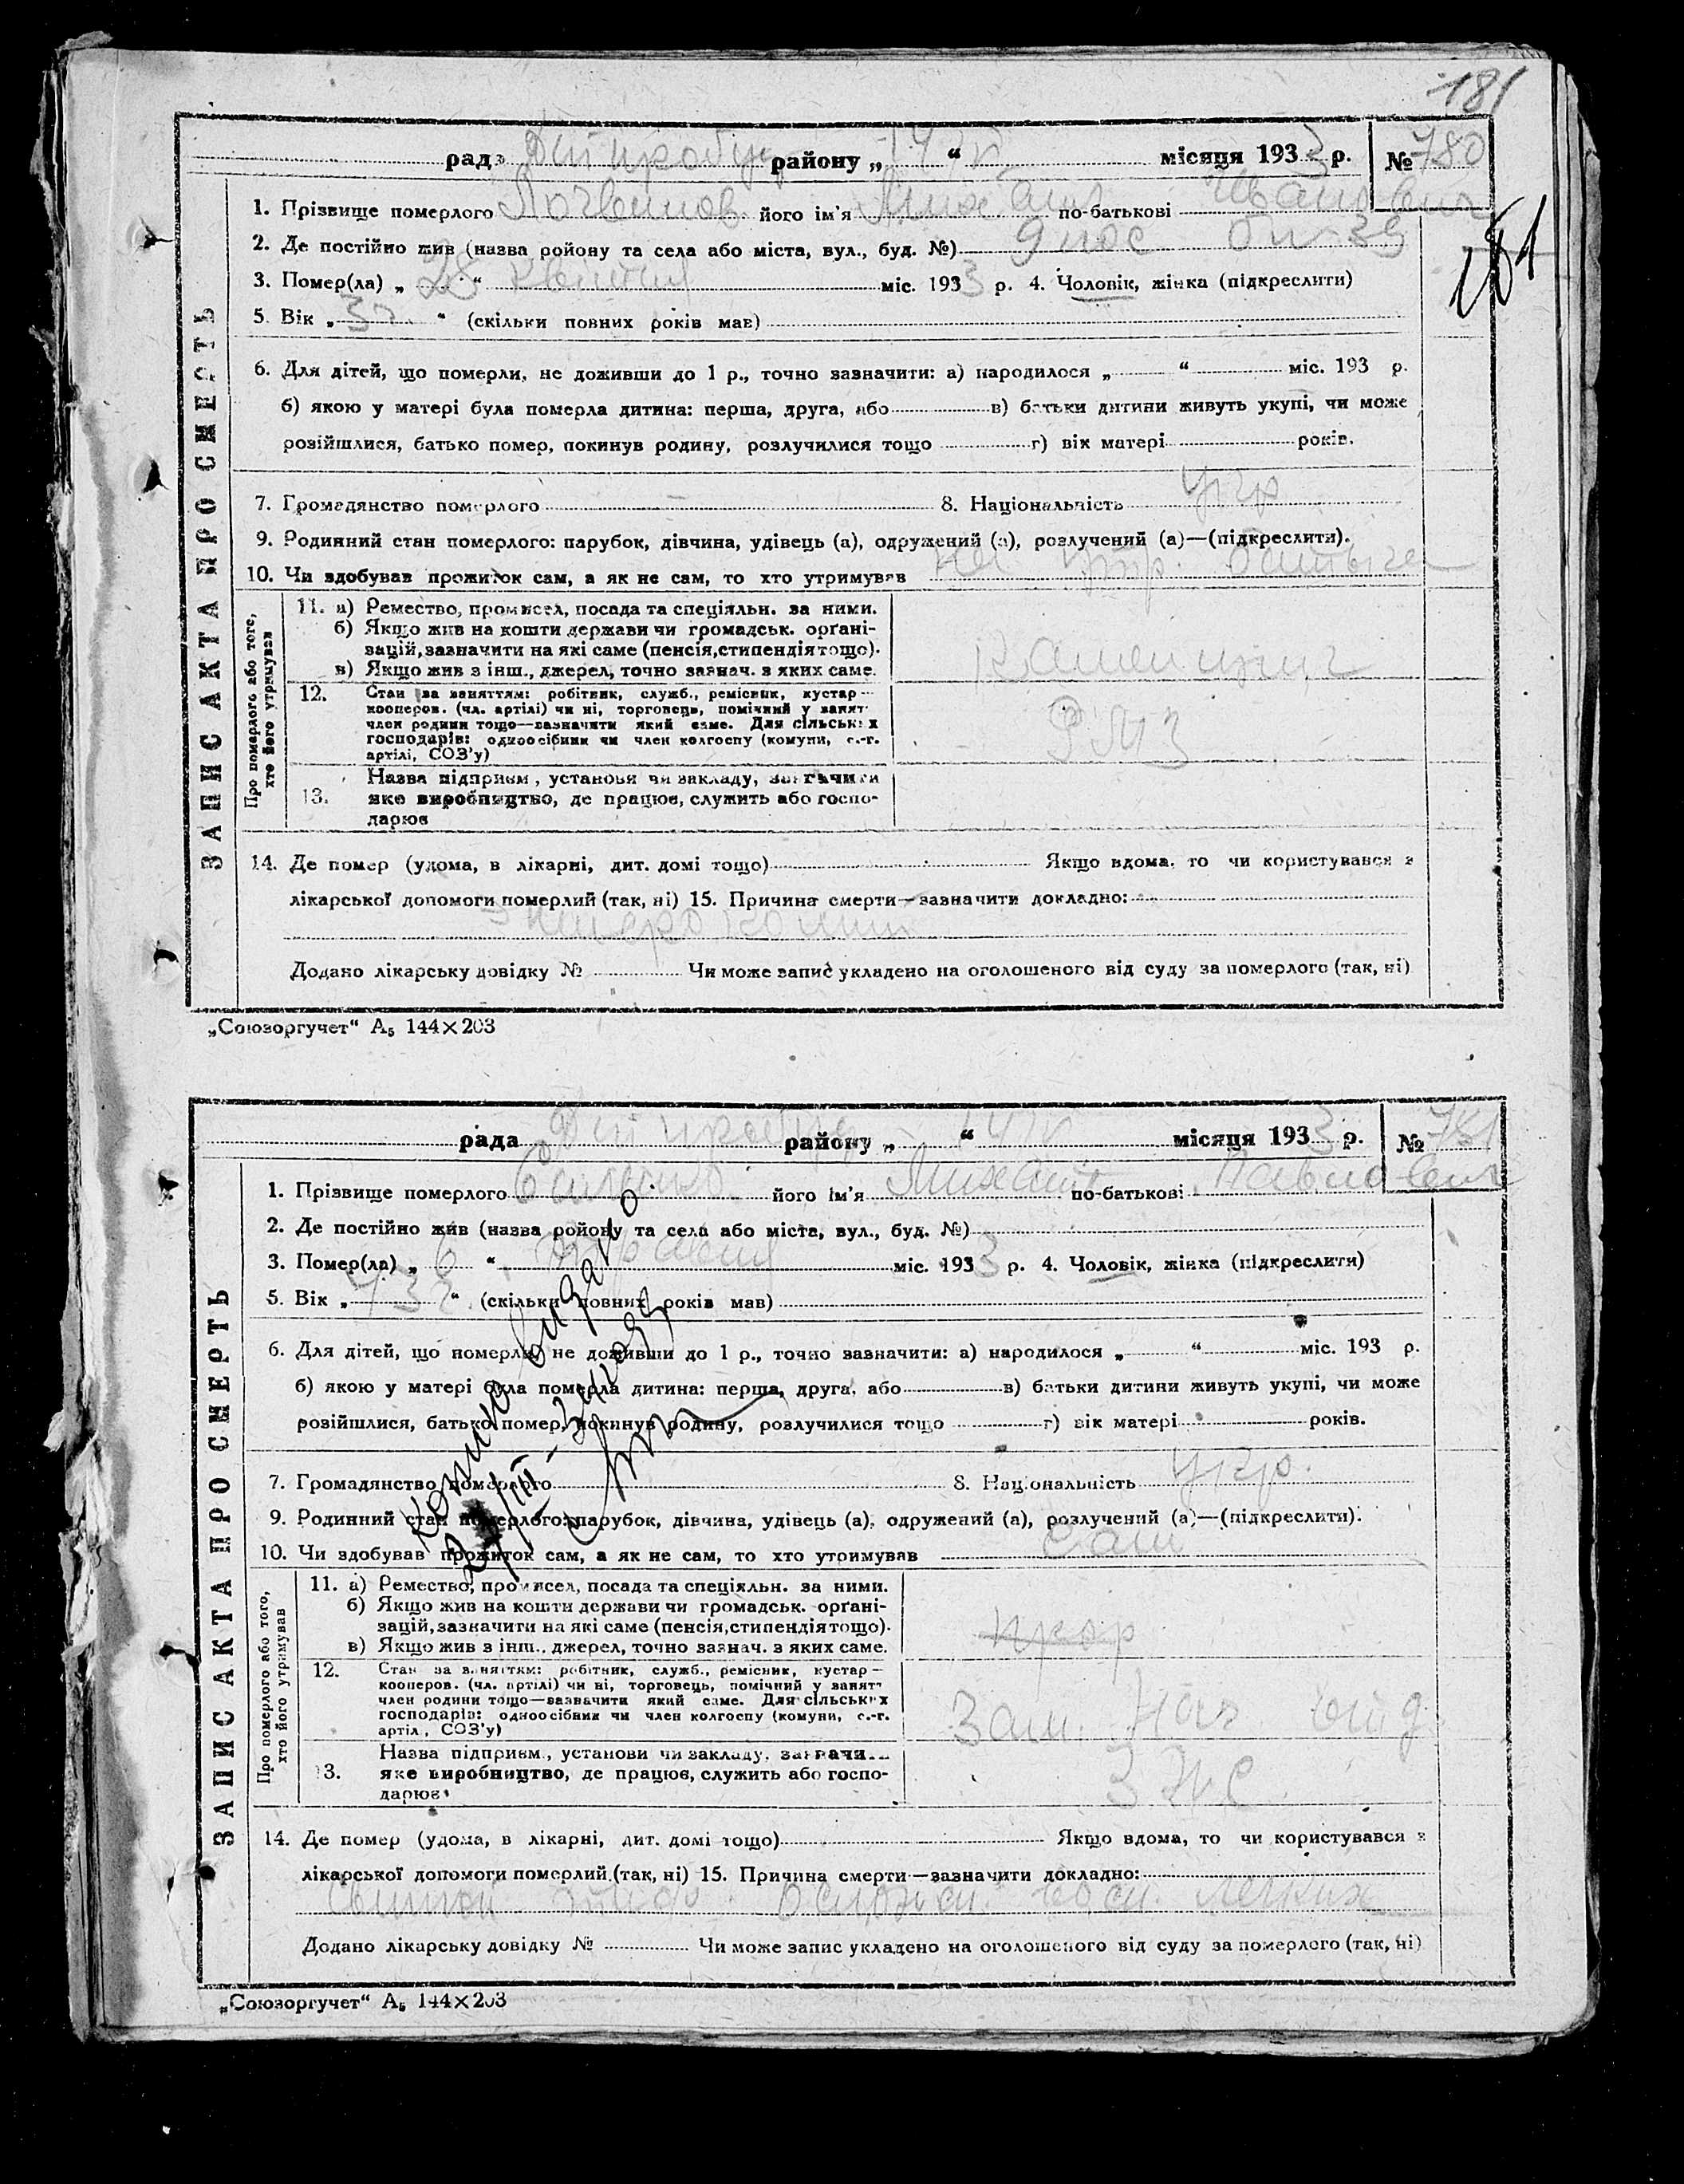 181
рада Дніпробуд району „ 14 “ V місяця 1933 р. № 780
1. Прізвище померлого Логвинов його ім'я Михайло по-батькові Иванович
2. Де постійно жив (назва ройону та села або міста, вул., буд. №) 9 пос 39
181
3. Помер(ла) „ 28 “ квітня міс. 1933 р. 4. Чоловік, жінка (підкреслити)
5. Вік „ 3 г. “ (скільки повних років мав)
6. Для дітей, що померли, не доживши до 1 р., точно зазначити: а) народилося „ “ міс. 193 р.
б) якою у матері була померла дитина: перша, друга, або в) батьки дитини живуть укупі, чи може
розійшлися, батько помер, покинув родину, розлучилися тощо г) вік матері років.
7. Громадянство померлого 8. Національність Укр
9. Родинний стан померлого: парубок, дівчина, удівець (а), одружений (а), розлучений (а)—(підкреслити).
10. Чи здобував прожиток сам, а як не сам, то хто утримував на утр. батька
ЗАПИС АКТА ПРО СМЕРТЬ
Про померлого або того, хто його утримував
11. а) Ремество, промисел, посада та спеціяльн. за ними.
б) Якщо жив на кошти держави чи громадськ. орґані-
зацій, зазначити на які саме (пенсія, стипендія тощо).
в) Якщо жив з інш., джерел, точно зазнач. з яких саме.
Каменщик
12. Стан за заняттям: робітник, служб., ремісник, кустар—
кооперов. (чл. артілі) чи ні, торговець, помічний у занят
член родини тощо—зазначити який саме. Для сільських
господарів: одноосібник чи член колгоспу (комуни, с.-г.
артілі, СОЗ'у)
РМЗ
13. Назва підприєм., установи чи закладу, зазначити
яке виробництво, де працює, служить або госпо-
дарює
14. Де помер (удома, в лікарні, дит. домі тощо) Якщо вдома, то чи користувався з
лікарської допомоги померлий (так, ні) 15. Причина смерти—зазначити докладно:
Энтероколит
Додано лікарську довідку № Чи може запис укладено на оголошеного від суду за померлого (так, ні)
„Союзоргучет“ А₅ 144×203
рада Дніпробуд району „ 14 “ V місяця 1933 р. № 781
1. Прізвище померлого його ім'я Михаил по-батькові Павлович
2. Де постійно жив (назва ройону та села або міста, вул., буд. №)
3. Помер(ла) „ 6 “ травня міс. 1933 р. 4. Чоловік, жінка (підкреслити)
5. Вік „ 43 г. “ (скільки повних років мав)
6. Для дітей, що померли, не доживши до 1 р., точно зазначити: а) народилося „ “ міс. 193 р.
б) якою у матері була померла дитина: перша, друга, або в) батьки дитини живуть укупі, чи може
розійшлися, батько помер, покинув родину, розлучилися тощо г) вік матері років.
Копию видано
7. Громадянство померлого 8. Національність Укр.
9. Родинний стан померлого: парубок, дівчина, удівець (а), одружений (а), розлучений (а)—(підкреслити).
10. Чи здобував прожиток сам, а як не сам, то хто утримував сам
ЗАПИС АКТА ПРО СМЕРТЬ
Про померлого або того, хто його утримував
11. а) Ремество, промисел, посада та спеціяльн. за ними.
б) Якщо жив на кошти держави чи громадськ. орґані-
зацій, зазначити на які саме (пенсія, стипендія тощо).
в) Якщо жив з інш., джерел, точно зазнач. з яких саме.
12. Стан за заняттям: робітник, служб., ремісник, кустар—
кооперов. (чл. артілі) чи ні, торговець, помічний у занят
член родини тощо—зазначити який саме. Для сільських
господарів: одноосібник чи член колгоспу (комуни, с.-г.
артіл., СОЗ'у)
Зам. Нач від
13. Назва підприєм., установи чи закладу, зазначи
яке виробництво, де працює, служить або госпо-
дарює
14. Де помер (удома, в лікарні, дит. домі тощо) Якщо вдома, то чи користувався з
лікарської допомоги померлий (так, ні) 15. Причина смерти—зазначити докладно:
тиф легких
Додано лікарську довідку № Чи може запис укладено на оголошеного від суду за померлого (так, ні)
„Союзоргучет“ А₅ 144×203